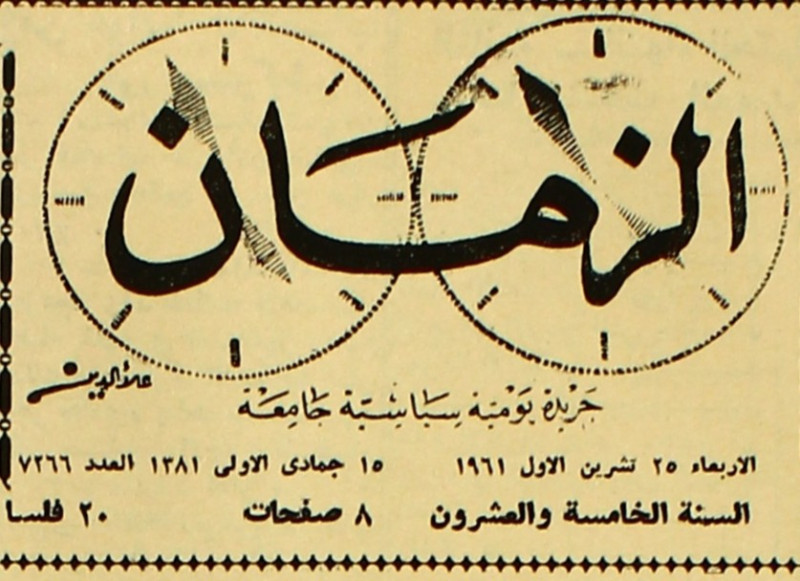 الزمان
علاءالدين
جريدة يومية سياسية جامعة
الاربعاء ٢٥ تشرين الاول ١٩٦١ ١٥ جمادى الاولى ١٣٨١ العدد ٧٢٦٦
السنة الخامسة والعشرون ٨ صفحات ٢٠ فلسا